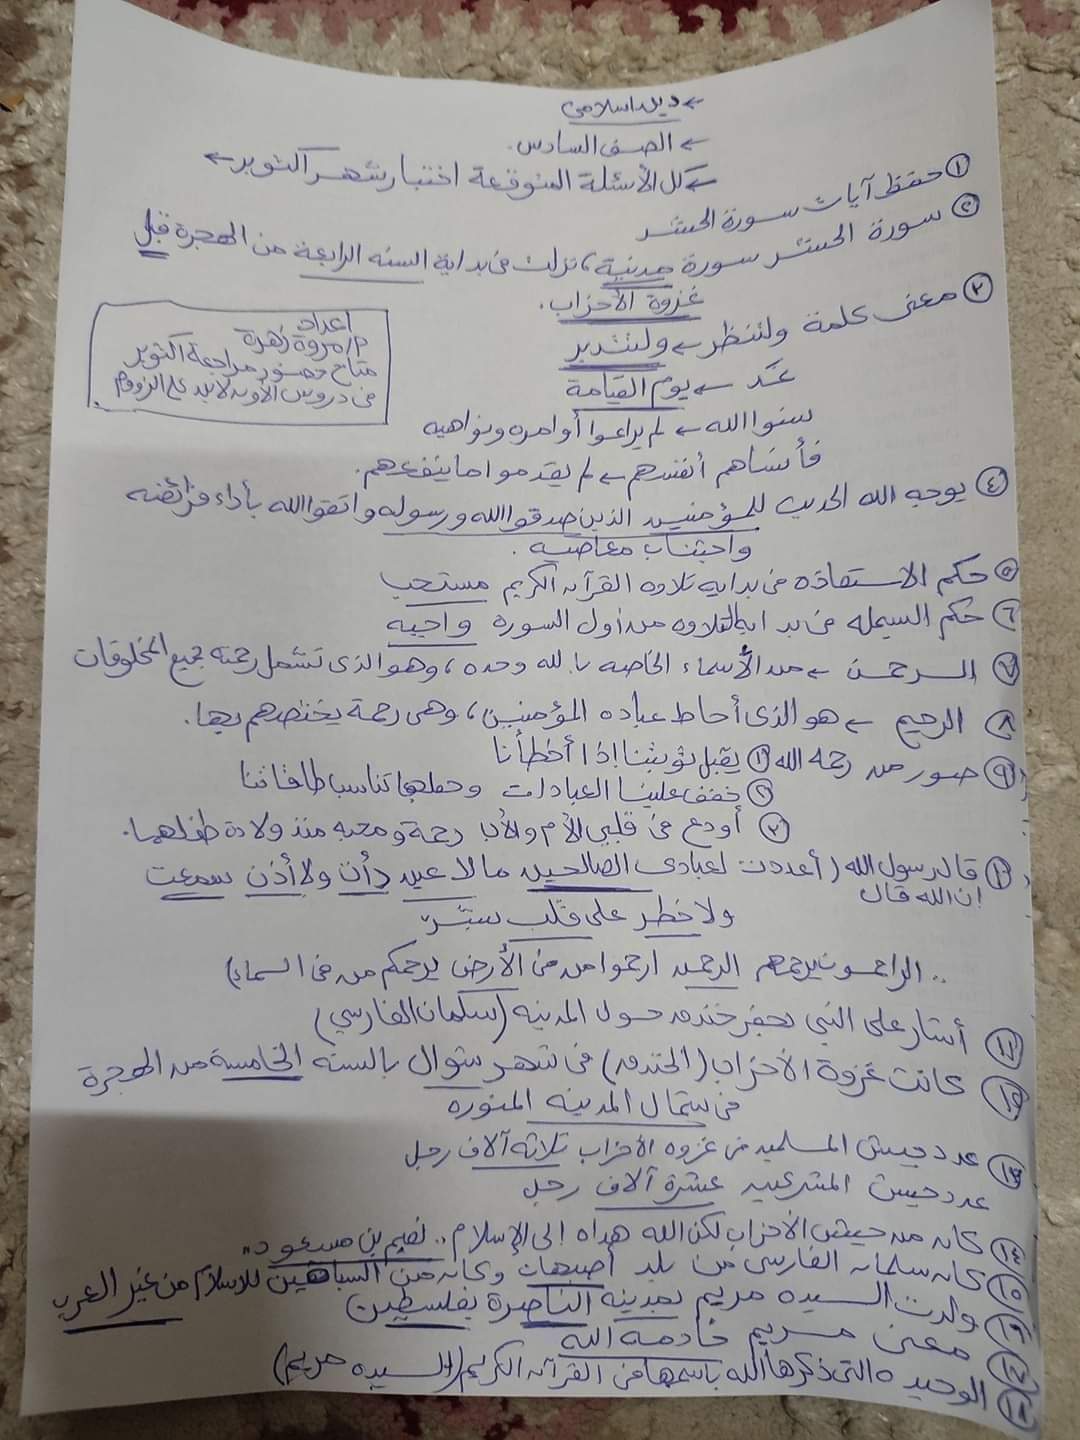 ← دين اسلامى
← الصف السادس.
← كل الأسئلة المتوقعة اختبار شهر اكتوبر ←
① حفظ آيات سورة الحشر
② سورة الحشر سورة مدنية، نزلت فى بداية السنه الرابعة من الهجرة قبل
غزوة الأحزاب.
③ معنى كلمة ولتنظر ← ولتتدبر
غد ← يوم القيامة
نسوا الله ← لم يراعوا أوامره ونواهيه
فأنساهم أنفسهم ← لم يقدموا ما ينفعهم.
اعداد
م/ مروة زهرة
متاح حضور مراجعة اكتوبر
فى دروس الأونلاين على الزووم
④ يوجه الله الحديث للمؤمنين الذين صدقوا الله ورسوله واتقوا الله بأداء فرائضه
واجتناب معاصيه.
⑤ حكم الاستعاذه فى بدايه تلاوه القرآن الكريم مستحب
⑥ حكم البسمله فى بدايه التلاوه من أول السورة واجبه
⑦ الرحمن ← من الأسماء الخاصه بالله وحده، وهو الذى تشمل رحمته جميع المخلوقات
⑧ الرحيم ← هو الذى أحاط عباده المؤمنين، وهى رحمة يختصهم بها.
⑨ صور من رحمه الله ① يقبل توبتنا إذا أخطأنا
② خفف علينا العبادات وجعلها تناسب طاقاتنا
③ أودع فى قلبي الأم والأب رحمة ومحبه منذ ولادة طفلهما.
⑩ قال رسول الله (أعددت لعبادى الصالحين ما لا عين رأت ولا أذن سمعت
إن الله قال
ولا خطر على قلب بشر"
.. الراحمون يرحمهم الرحمن ارحموا من فى الأرض يرحمكم من فى السماء)
⑪ أشار على النبي بحفر خندق حول المدينه (سلمان الفارسي)
⑫ كانت غزوة الأحزاب (الخندق) فى شهر شوال بالسنه الخامسة من الهجرة
فى شمال المدينه المنوره
⑬ عدد جيش المسلمين فى غزوه الأحزاب ثلاثه آلاف رجل
عدد جيش المشركين عشرة آلاف رجل
⑭ كان من جيش الأحزاب لكن الله هداه إلى الإسلام .. نعيم بن مسعود"
⑮ كان سلمان الفارسى من بلد أصبهان وكان من السباقين للاسلام من غير العرب
⑯ ولدت السيده مريم بمدينه الناصرة بفلسطين
⑰ معنى مريم خادمه الله
⑱ الوحيده التى ذكرها الله باسمها فى القرآن الكريم (السيده مريم)